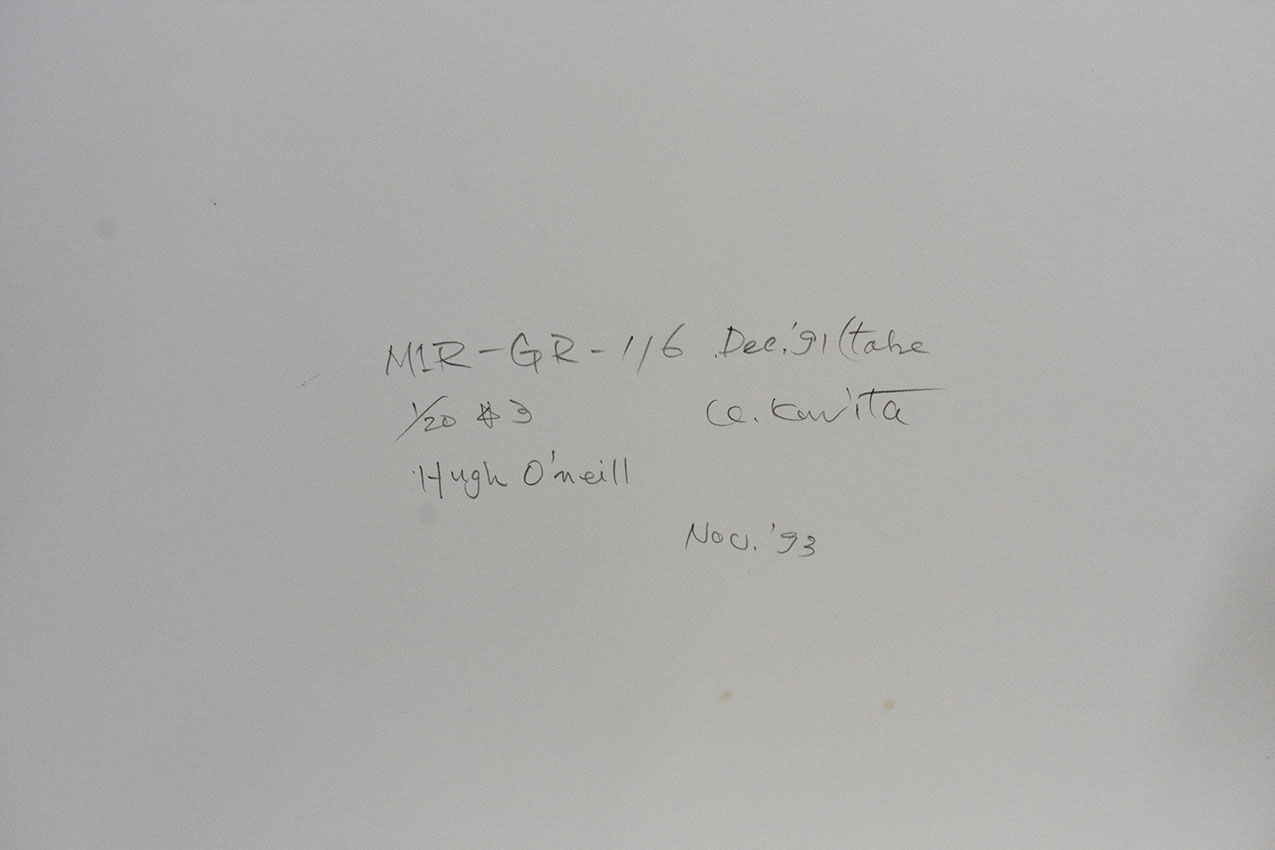 M1R-GR-116 Dec.'91 (take
1/20 #3 Co. Kavita
Hugh O'neill
Nov. '93